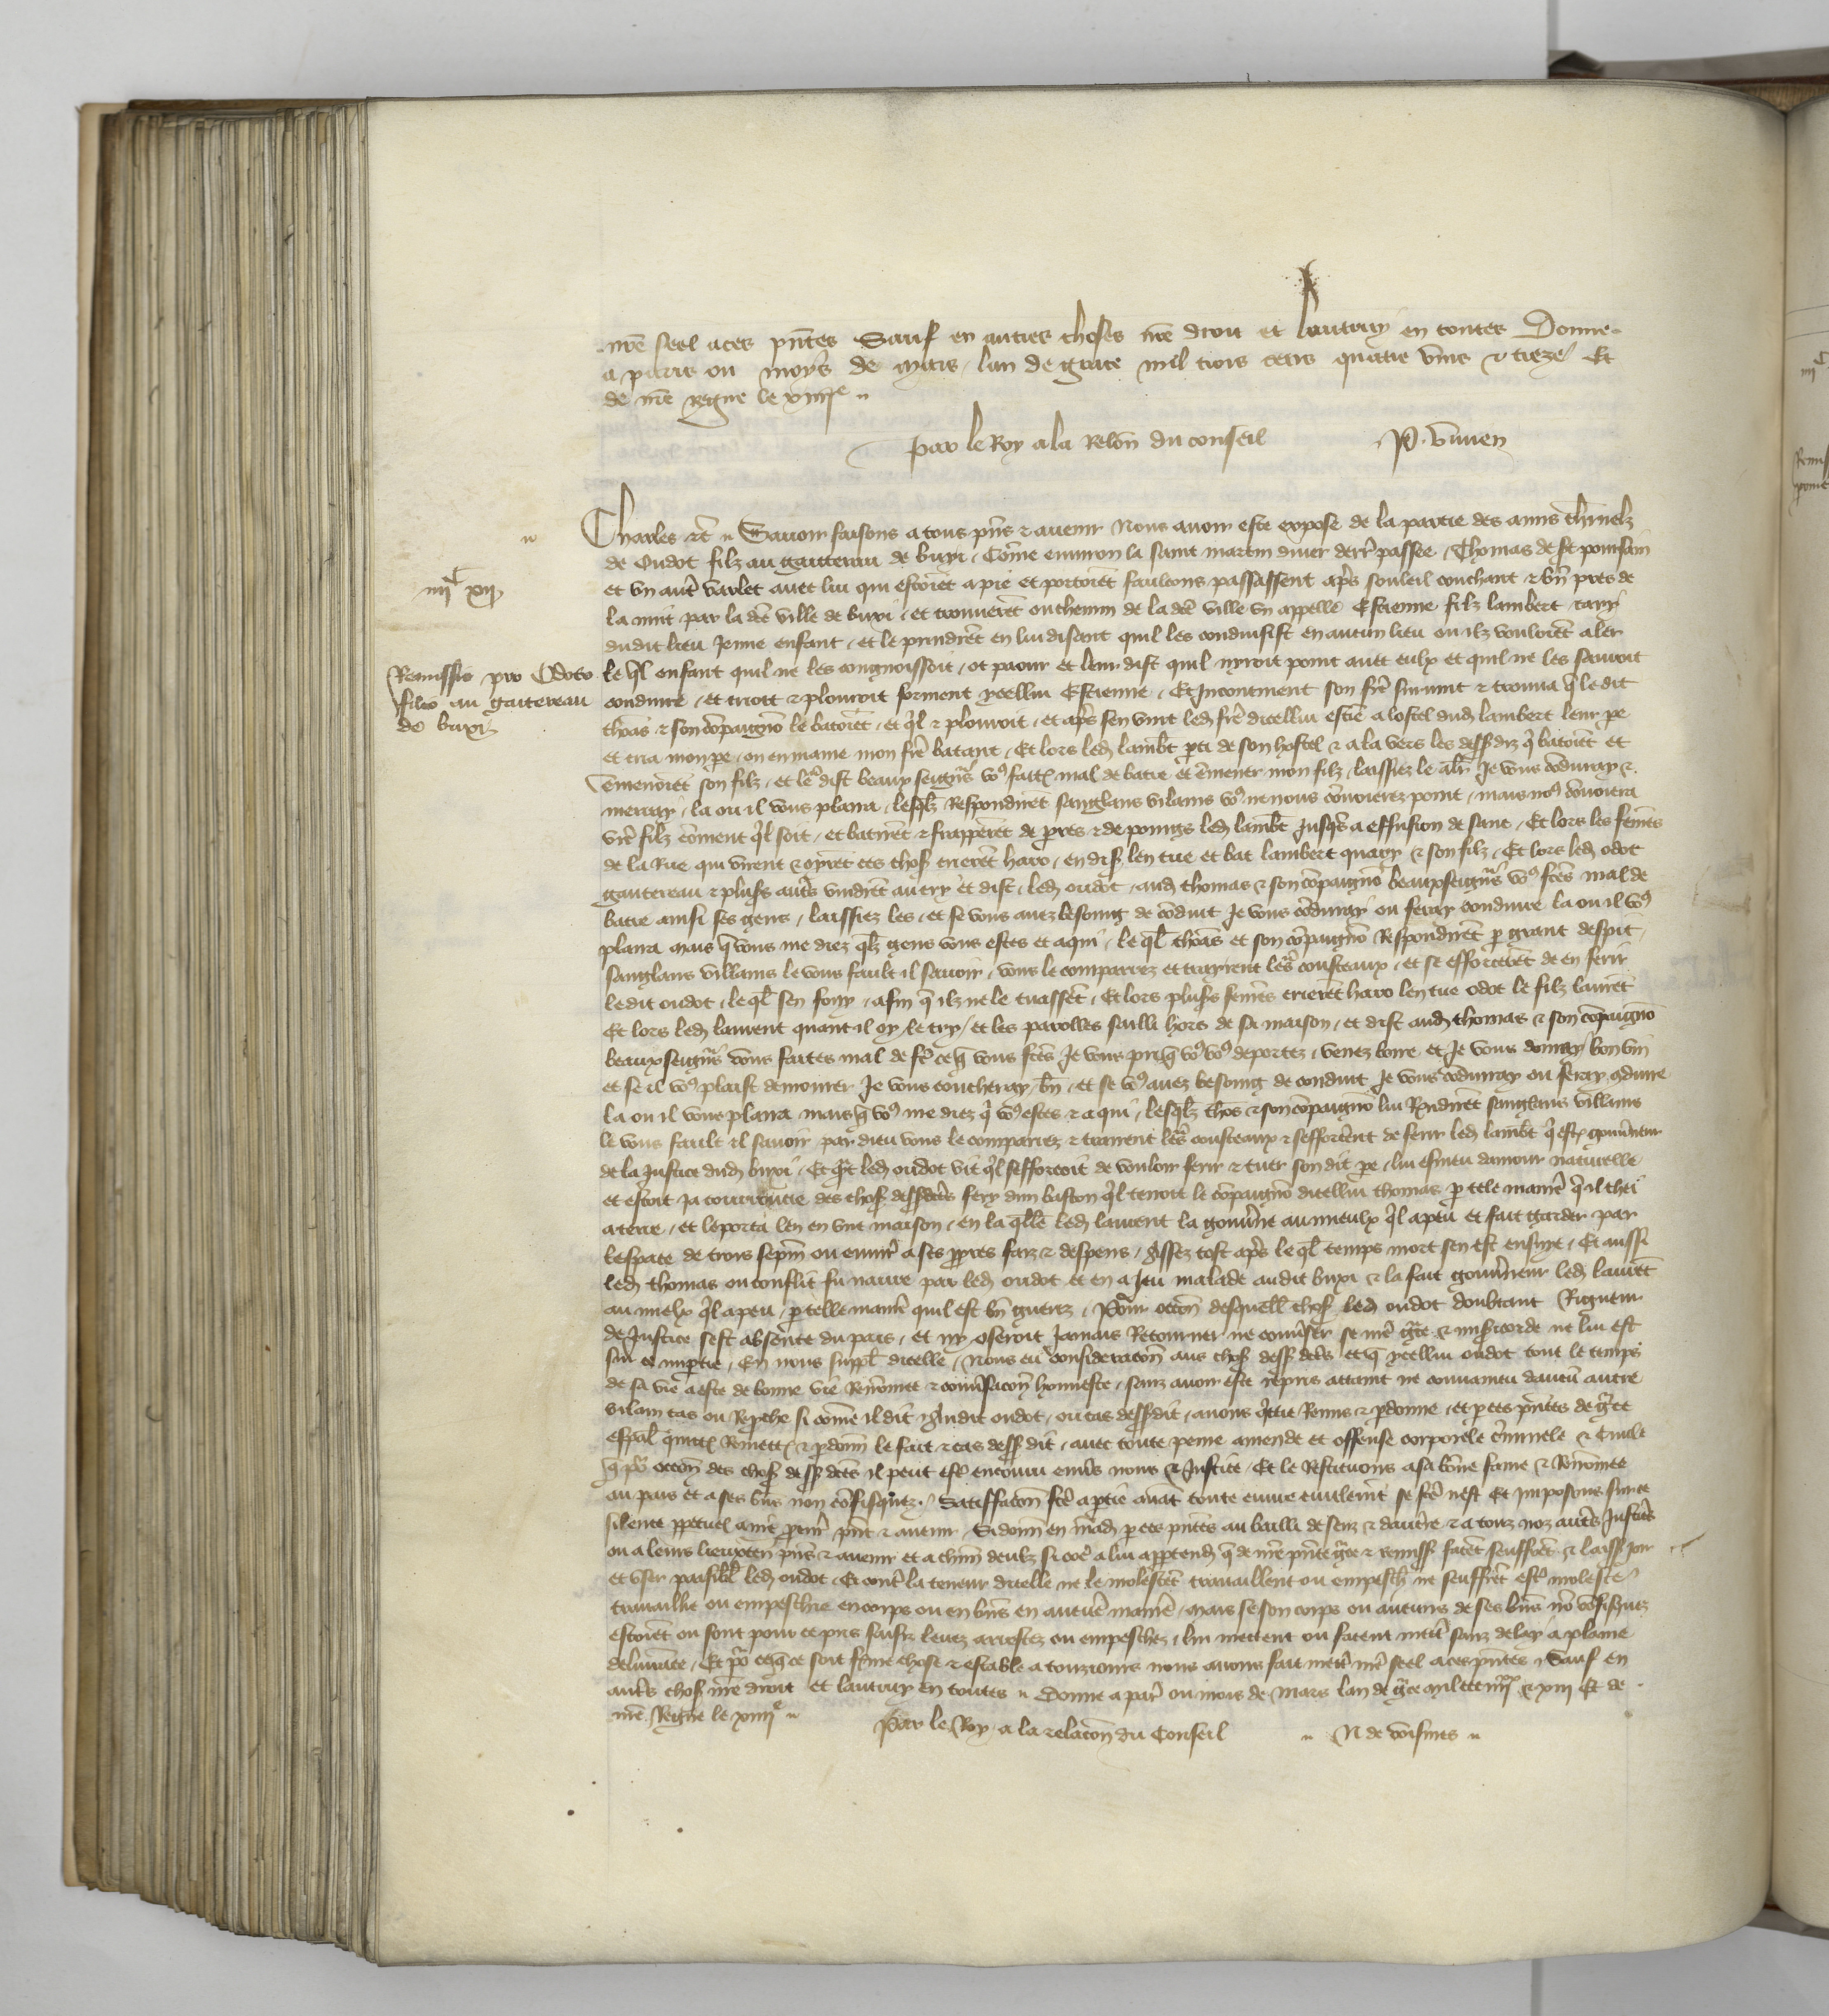 nre seel a ces pntes Sauf en autres choses nre droit et lautruy en toutes Donne
a paris ou moys de mars lan de grace mil trois cens quatre vins & treze Et
de nre regne le xiiiie
Par le Roy a la relon du conseil P. vivien
Charles etc Savoir faisons a tous pns & avenir Nous avoir este expose de la partie des amis charnelz
de Oudot filz au gautereau de buxi Come environ la saint martin diver derr passee Thomas de st poinsain
et un autre varlet avec lui qui estoient a pie et portoient faulcons passassent apres souleil couchant & bn pres de
la nuit par la dce ville de buxi et trouverent ou chemin de la dce ville un appelle Estienne filz lambert
dudit lieu Jeune enfant et le prindrent en lui disant quil les conduisist en aucun lieu ou ilz vouloient aler
iiiic xij
Remissio pro Odoto
filio au gautereau
de buxi
le ql enfant quil ne les congnoissoit ot paour et leur dist quil nyroit point avec eulx et quil ne les savroit
conduire et crioit & plouroit forment ycellui Estienne Et Incontinent son fre survint & trouva q le dit
thoas & son compaignon le batoient et ql & plouroit et apres sen vint led fre dicellui estie a lostel dud lambert leur pe
et cria mon pe on en maine mon fre batant Et lors led lambt parti de son hostel & ala vers les dessdiz q batoient et
emenoient son filz et leur dist beaux seigneurs vous faites mal de batre et emener mon filz laissiez le aler Je vous conduiray &
menray la ou il vous plaira lesqlz respondirent sanglans vilains vous ne nous convoierez point mais nous convoiera
vre filz coment ql soit et batirent & frapperent de pies & de poings led lambt Jusqs a effusion de sanc Et lors les femes
de la Rue qui virent & oyrent ces choses crierent haro en dis len tue et bat lambert & son filz Et lors led odot
gautereau & plusrs autres vindrent au cry et dist led oudot aud thomas & son compaignon beaux seigneurs vous fces mal de
batre ainsi ses gens laissiez les et se vous avez besoing de conduit Je vous conduiray ou feray conduire la ou il vous
plaira mais q vous me diez qlz gens vous estes et a qui le ql thoas et son compaignon respondirent p grant despit
sanglans villains le vous fault il savoir vous le comparrez et trairent leurs cousteaux et se efforcerent de en ferir
le dit oudot le ql sen fouy afin q ilz ne le tuassent Et lors plusrs femes crierent haro len tue odot le filz laurent
Et lors led laurent quant il oy le cry et les parolles sailli hors de sa maison et dist aud thomas & son compaignon
beaux seigneurs vous faites mal de fe ce q vous fces Je vous pri q vous vous deportez venez boire et Je vous donray bon vin
et se il vous plaist demourer Je vous coucheray bn et se vous avez besoing de conduit Je vous conduiray ou feray conduire
la ou il vous plaira mais q vous me diez q vous estes & a qui lesqlz thoas & son compaignon lui Rndirent sanglans villains
le vous fault il savoir par dieu vous le comparrez & trairent leurs cousteaux & sefforcerent de ferir led lambt q est gouverneur
de la Justice dud buxi Et qt led oudot vit ql sefforcoit de vouloir ferir & tuer son dit pe lui esmeu damour naturelle
et estoit Ja courrouciee des choses dessdces fery dun baston ql tenoit le compaignon dicellui thomas p tele maniere q il chei
a terre et le porta len en une maison en la qlle led laurent la gouverne au mieulx ql a peu et fait garder par
lespace de trois sepm ou environ a ses propres fraiz & despens Assez tost apres le ql temps mort sen est ensuye Et aussi
led thomas ou conflit fu navre par led oudot et en a Jeu malade audit buxi & la fait gouverner led laurent
au mielx ql a peu p telle maniere quil est bn gueriz Pour occon desquelles choses led oudot doubtant Rigueur
de Justice sest absente du pais et ny oseroit Jamais Retourner ne converser se nre grace & misericorde ne lui est
sur ce impartie En nous suppl dicelle Nous eu consideracon aus choses dess dces et q ycellui oudot tout le temps
de sa vie a este de bonne vie Renomee & conversacon honneste sanz avoir este repris attaint ne convaincu daucun autre
vilain cas ou Reproche si come il dit Audit oudot ou cas dessdit avons quicte Remis & pardonne et p ces pntes de grace
espal quictons Remettons & pardonnons le fait & cas dess dit avec toute peine amende et offense corporele criminele & Civile
q pour occon des choses dess dces il peut estre encouru envers nous & Justice Et le Restituons a sa bone fame & Renomee
au pais et a ses bns non confisquez Satisfacon fce a partie avant toute euvre civilemt se fce nest Et Imposons sur ce
silence perpetuel a nre procur pnt & avenir Si donn en mand p ces pntes au bailli de senz & daucerre & a touz noz autres Justiciers
ou a leurs lieuxten pns & avenir et a chun deulx si coe a lui appartendra q de nre pnte grace & remiss facent seuffrent & laissent Joir
et user paisiblemt led oudot Et contre la teneur dicelle ne le molestent travaillent ou empeschent ne seuffrent estre moleste
travaillie ou empeschie en corps ou en bns en aucune maniere Mais se son corps ou aucuns de ses bns non confisquez
estoient ou sont pour ce pris saisiz levez arrestez ou empeschez lui mettent ou facent mettre sanz delay a plaine
delivrance Et pour ce q ce soit ferme chose & estable a tourjours nous avons fait mettre nre seel a ces pntes Sauf en
autres choses nre droit et lautruy en toutes Donne a paris ou mois de Mars lan de grace mil ccc iiiixx & xiii Et de
nre Regne le xiiiie
Par le Roy a la relacon du Conseil N de voisines